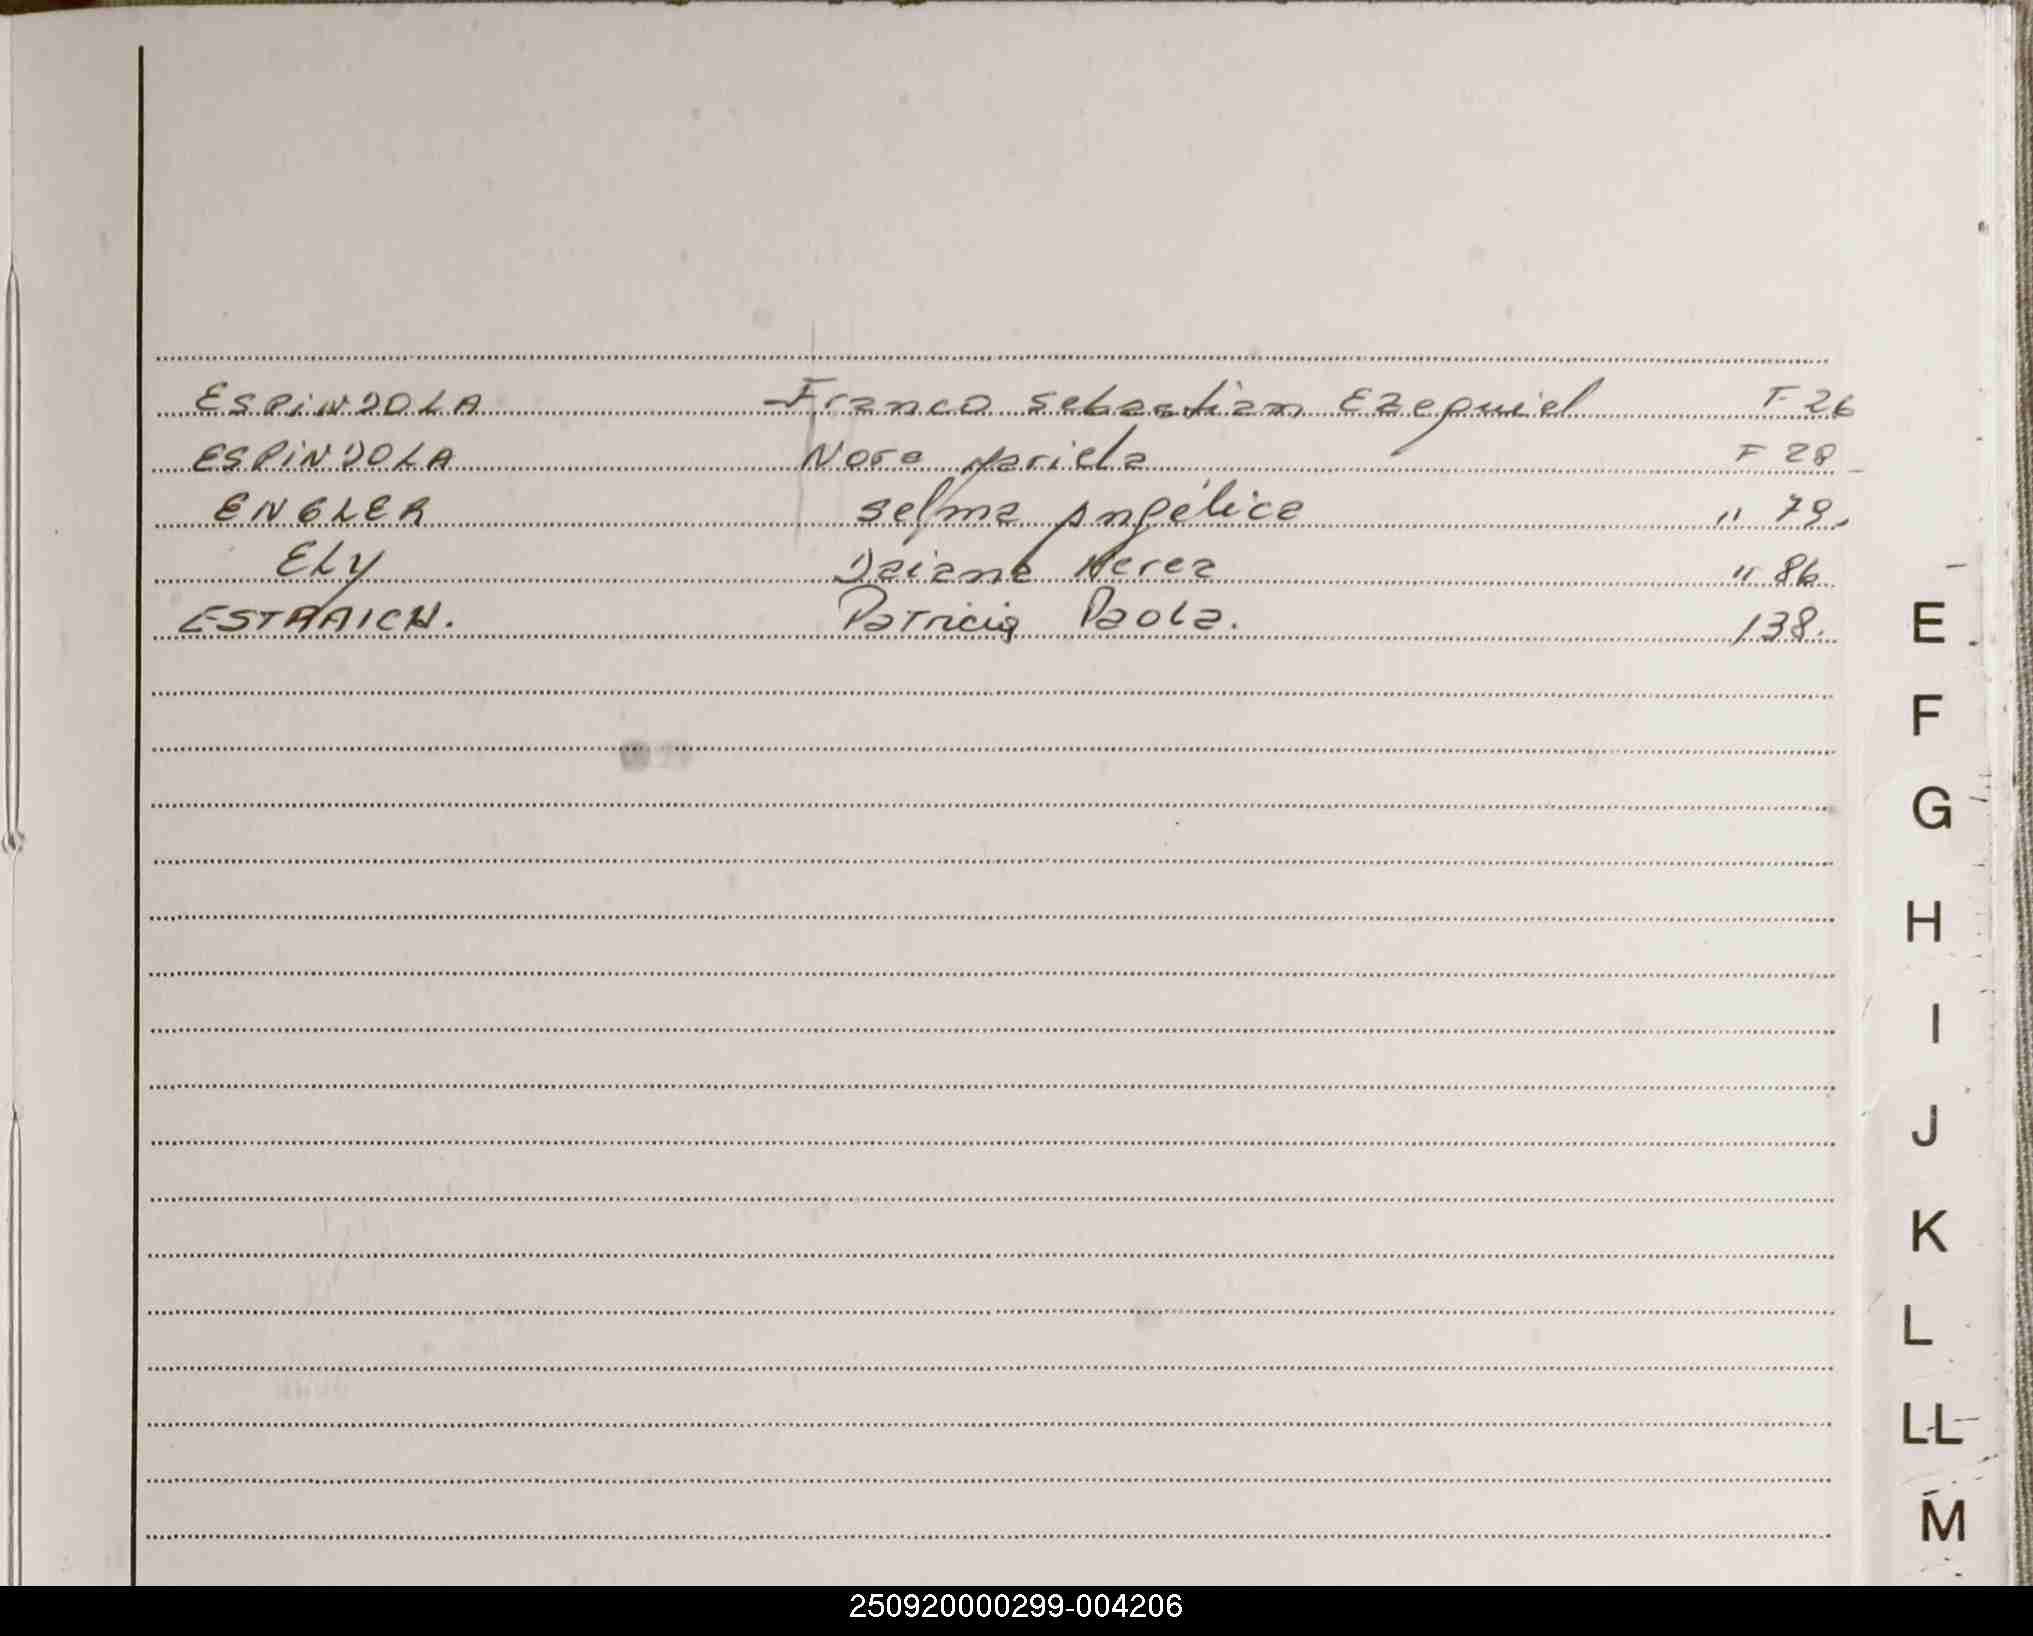 ESPiNDOLA Franco Sebastian Ezequiel F 26
ESPiNDOLA Nora Mariela F 28
ENGLER Selma Angélica " 79.
ELy Daiane Nerea " 86
ESTRAICH. Patricia Paola. 138.
E
F
G
H
I
J
K
L
LL
M
250920000299-004206